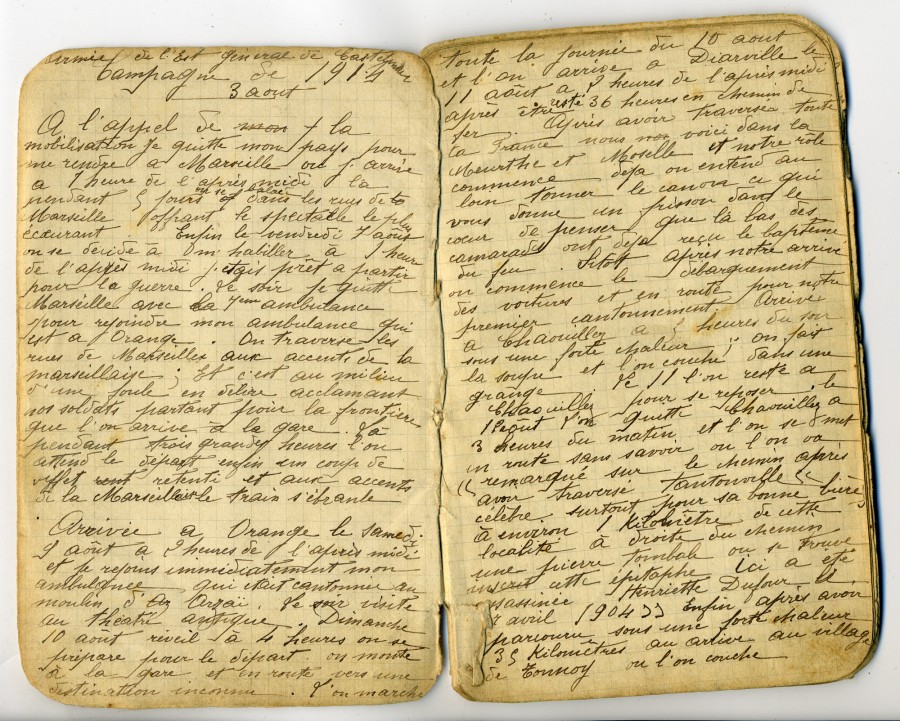 Armée de l'Est général de Castelnau
Campagne de 1914
3 aout
A l'appel de mon la
mobilisation je quitte mon pays pour
me rendre à Marseille ou j'arrive
a 7 heure de l'après midi la
pendant 5 jours on se balade dans les rues de
Marseille offrant le spectacle le plus
écœurant Enfin le vendredi 7 août
on se décide à m'habiller à 1 heure
de l'après midi j'étais prêt a partir
pour la guerre. Le soir je quitte
Marseille avec la 7eme ambulance
pour rejoindre mon ambulance qui
est a Orange. On traverse les
rues de Marseille aux accents de la
marseillaise; Et c'est au milieu
d'une foule en délire acclamant
nos soldats partant pour la frontière
que l'on arrive à la gare. Là
pendant trois grandes heures l'on
attend le départ enfin un coup de
sifflet retenti et aux accents
de la Marseillaise le train s'ébranle
Arrivée a Orange le samedi
8 août a 2 heures de l'après midi
et je rejoins immédiatement mon
ambulance qui était cantonnée au
moulin d' Le soir visite
au théâtre antique. Dimanche
10 août réveil à 4 heures on se
prépare pour le départ on monte
à la gare et en route vers une
destination inconnue. L'on marche
toute la journée du 10 aout
et l'on arrive a Diarville le
11 août a 2 heures de l'après midi
après être resté 36 heures en chemin de
fer. Après avoir traversé toute
la France nous voici dans la
Meurthe et Moselle et notre rôle
commence déja on entend au
loin tonner le canon ce qui
vous donne un frisson dans le
cœur de penser que là bas des
camarads ont déja reçu le baptême
du feu. Sitôt après notre arrivée
on commence le débarquement
des voitures et en route pour notre
premier cantonnement Arrivé
à Chaouilley a 5 heures du soir
sous une forte chaleur; on fait
la soupe et l'on couche dans une
grange Le 11 l'on reste a
Chaouilley pour se reposer; le
1 aout l'on quitte Chaouilley a
3 heures du matin et l'on se met
en route sans savoir ou l'on va
(( remarqué sur le chemin après
avoir traversé Tantonville ((
célèbre surtout pour sa bonne bière ))
à environ 1 kilomètre de cette
localité à droite du chemin
une pierre tombale ou se trouve
inscrit cette épitaphe Ici a été
assassinée Henriette Dufour le
avril 1904 )) Enfin après avoir
parcouru sous une forte chaleur
35 kilomètres on arrive au village
de Tonnoy ou l'on couche